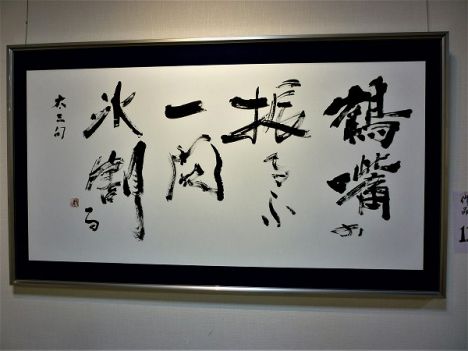 鶴嘴の
振るふ
一閃
氷割る
太三句